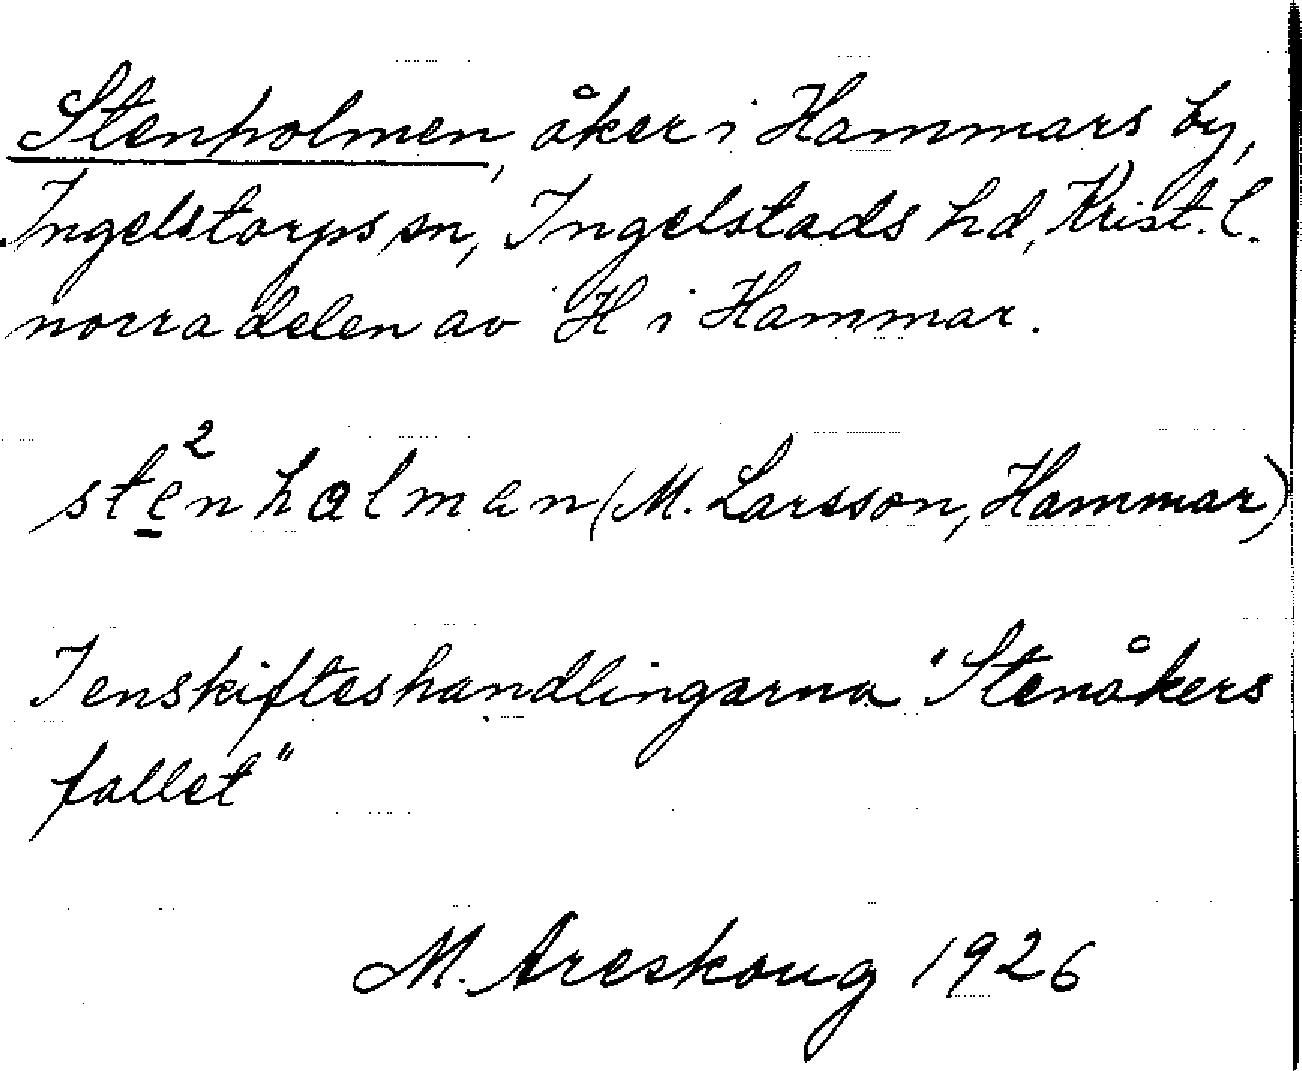 Stenholmen, åker i Hammars by,
Ingelstorps sn, Ingelstads hd, Krist. l.
norra delen av H i Hammar.
ste̲²nhalman (M. Larsson, Hammar)
I enskifteshandlingarna "Stenåkers
fallet"
M. Areskoug 1926